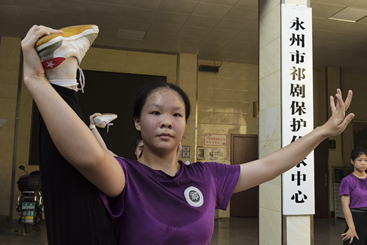 永州市祁剧保护传承中心